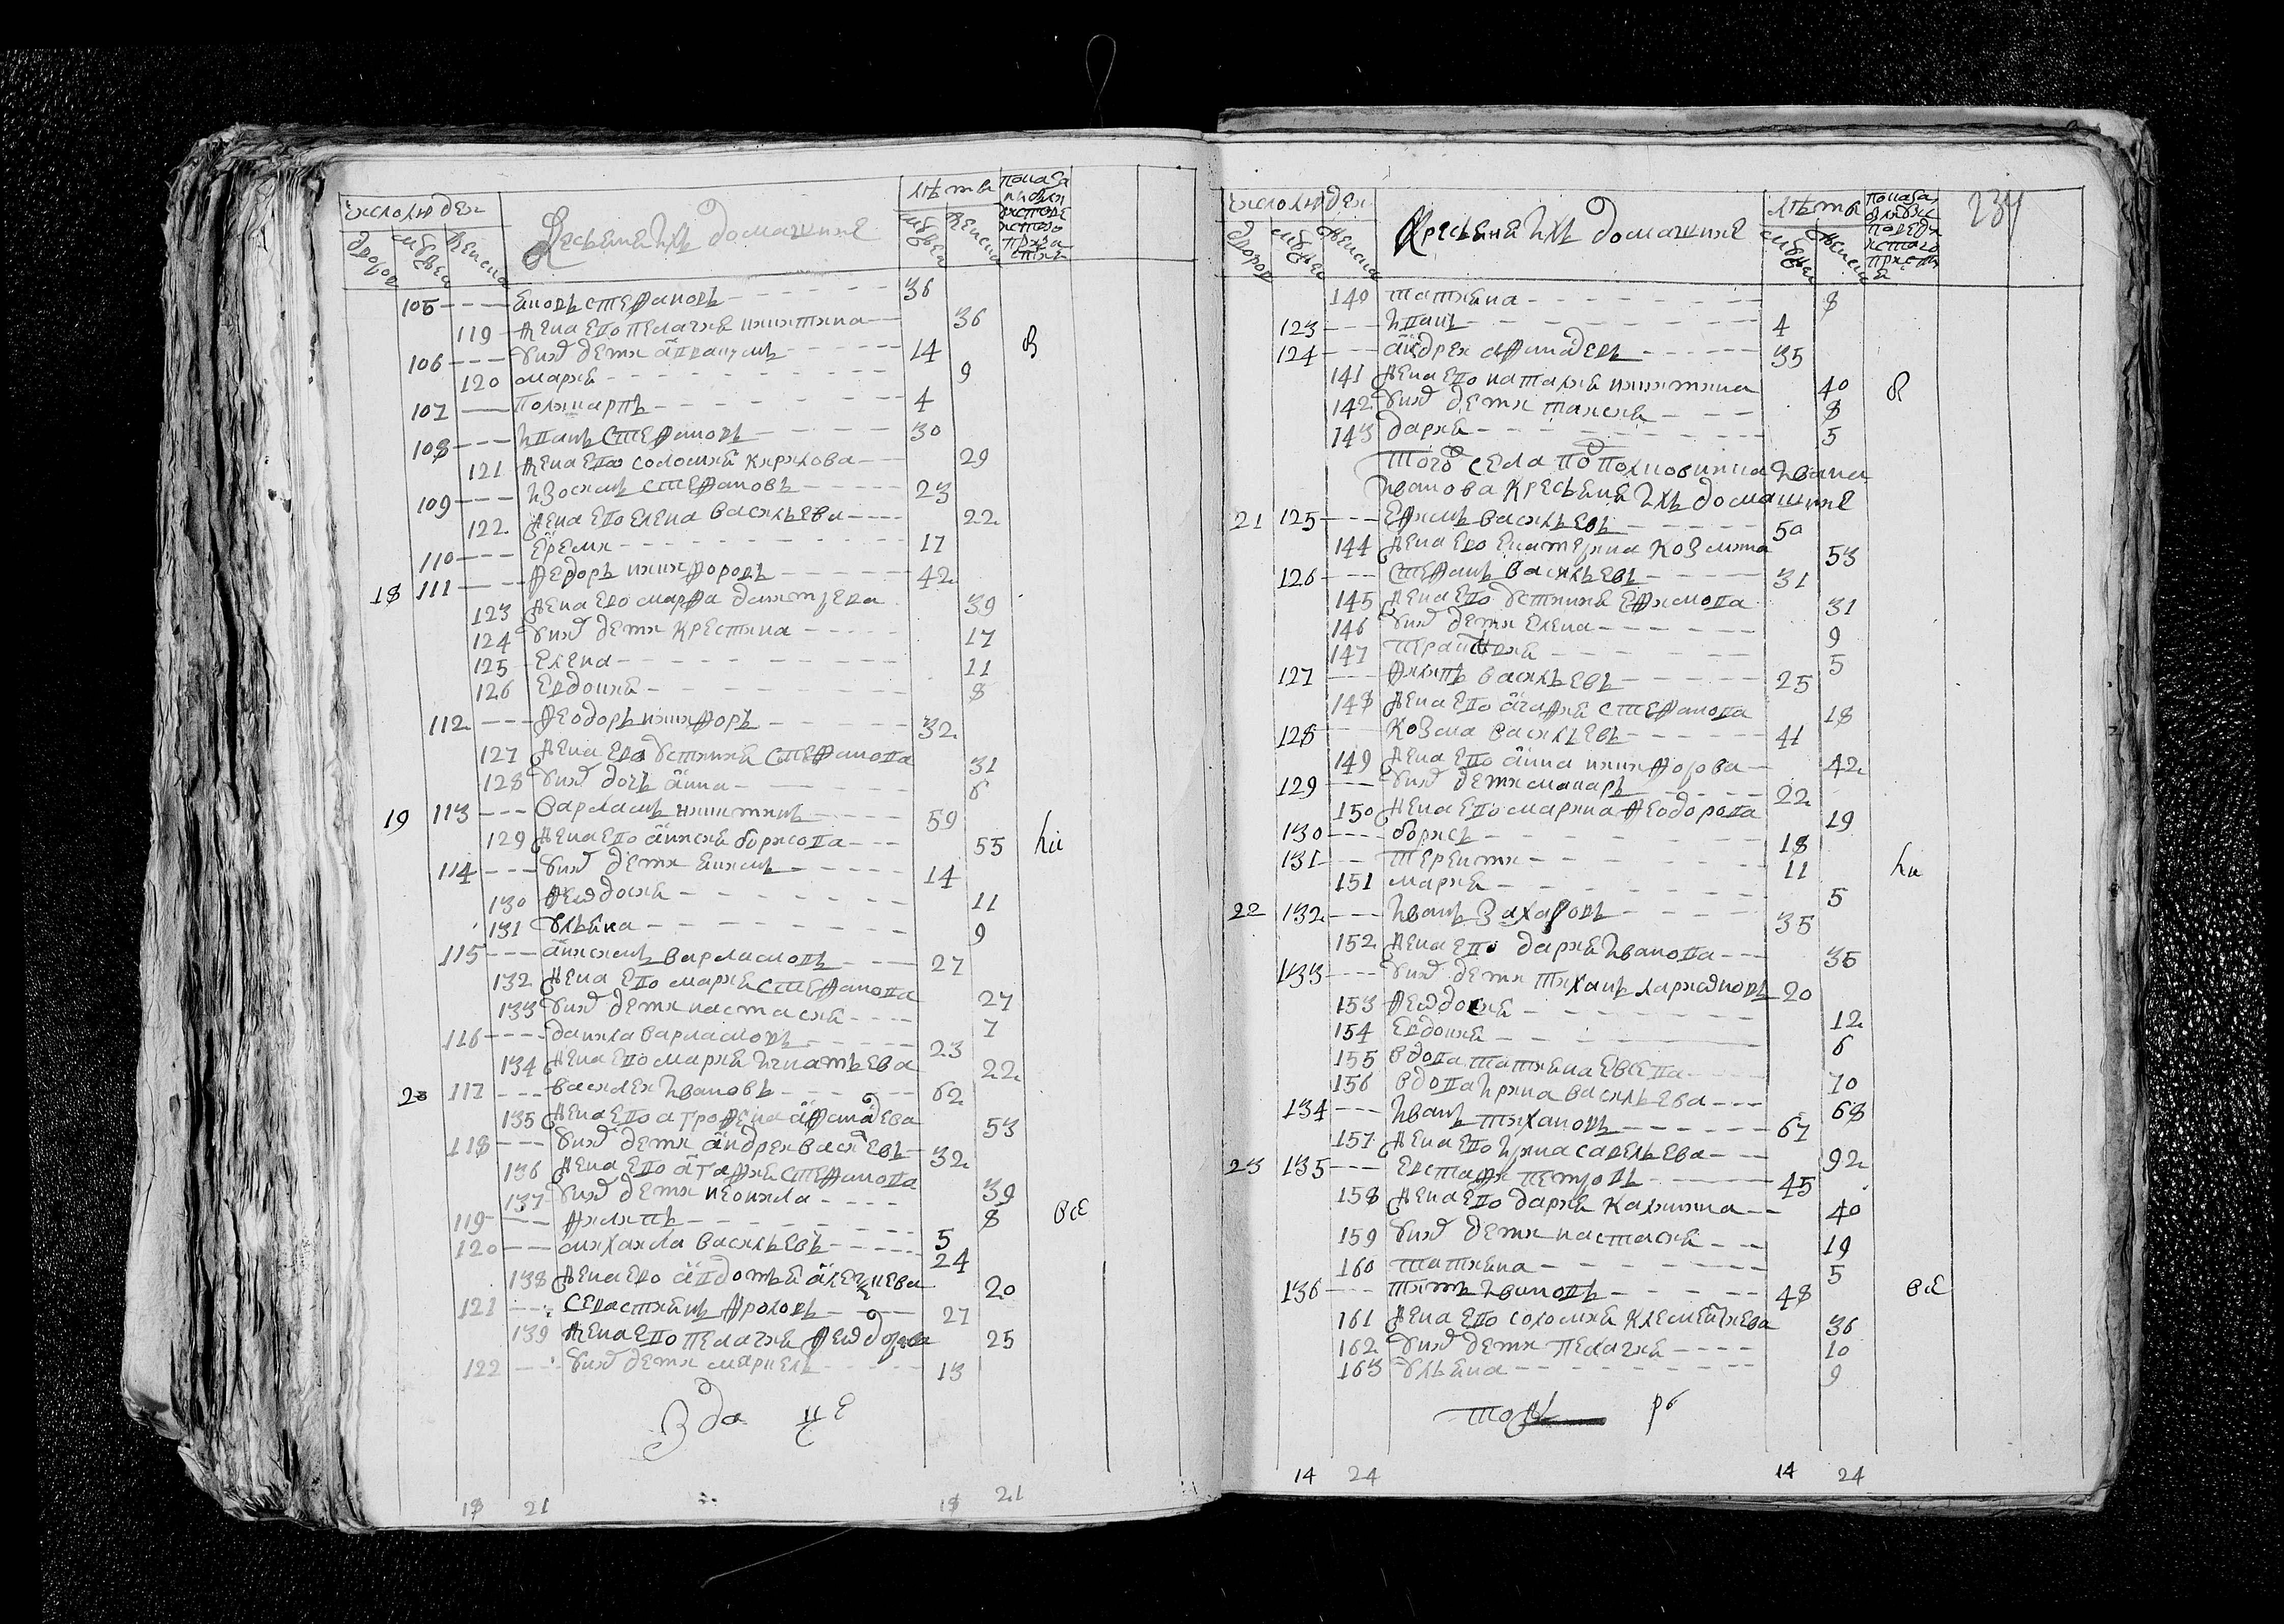 число людеи
Кресьяне ихъ домашние
лѣта
дворов
мужеска
женска
105 якову стефановъ 36
119 жена его пелагия никитина 36
106 у них дети авраамъ 14
120 мария 9
107 поликарпъ 4
108 иванъ стефановъ 30
121 жена его соломия кирилова 29
109 изосимъ стефановъ 23
122 жена его елена васильева 22
110 ерема 17
18 111 федоръ никифоровъ 42
123 жена его марфа димитрева 39
124 у них дети крестина 17
125 елена 11
126 евдокия 8
112 феодоръ никифоръ 32
127 жена его устиния стефанова 31
128 у них дочь анна 6
19 113 варламъ никитинъ 59
129 жена его анисия борисова 55
114 у них дети якимъ 14
130 феодосия 11
131 ульяна 9
115 анисимъ варламовъ 27
132 жена его мария стефанова 27
133 у них дети настасия 7
116 данила варламовъ 23
134 жена его мария игнатьева 22
20 117 василеи ивановъ 62
135 жена его агрофена афанадева 53
118 у них дети андреи васиевъ 32
136 жена его агафия стефанова 39
137 у них дети неонила 8
119 филипъ 5
120 михаила васильевъ 24
138 жена его авдотья алексиева 20
121 севастиянъ фроловъ 27
139 жена его пелагия феодорова 25
122 у них дети маркелъ 13
18 21 18 21
234
число людеи
Кресьяне ихъ домашние
лѣта
140 татияна 8
123 иванъ 4
124 андреи афанадевъ 35
141 жена его наталия никитина 40
142 у них дети таисия 8
143 дария 5
того села по половинна ивана
иванова кресьяне ихъ домашние
21 125 ефимъ васильевъ 50
144 жена его екатерина козмина 53
126 стефанъ васильевъ 31
145 жена его устиния ефимова 31
146 у них дети елена 9
147 5
127 филипъ васильевъ 25
148 жена его агафия стефанова 18
128 козма васильевъ 41
149 жена его анна никифорова 42
129 у них дети макаръ 22
150 жена его марина феодорова 19
130 борисъ 18
131 терентии 11
151 мария 5
22 132 иванъ захаровъ 35
152 жена его дария иванова 35
133 у них дети тиханъ лариоиновъ 20
153 феодосия 12
154 евдокия 6
155 вдова татияна евсева 70
156 вдова ирина васильева 68
134 иванъ тихановъ 67
157 жена его ирина савельева 92
23 135 евстафи петровъ 45
158 жена его дария калинина 40
159 у них дети настасия 19
160 татияна 5
136 титъ ивановъ 48
161 жена его соломия клементиева 36
162 у них дети пелагия 10
163 ульяна 9
14 24 14 24